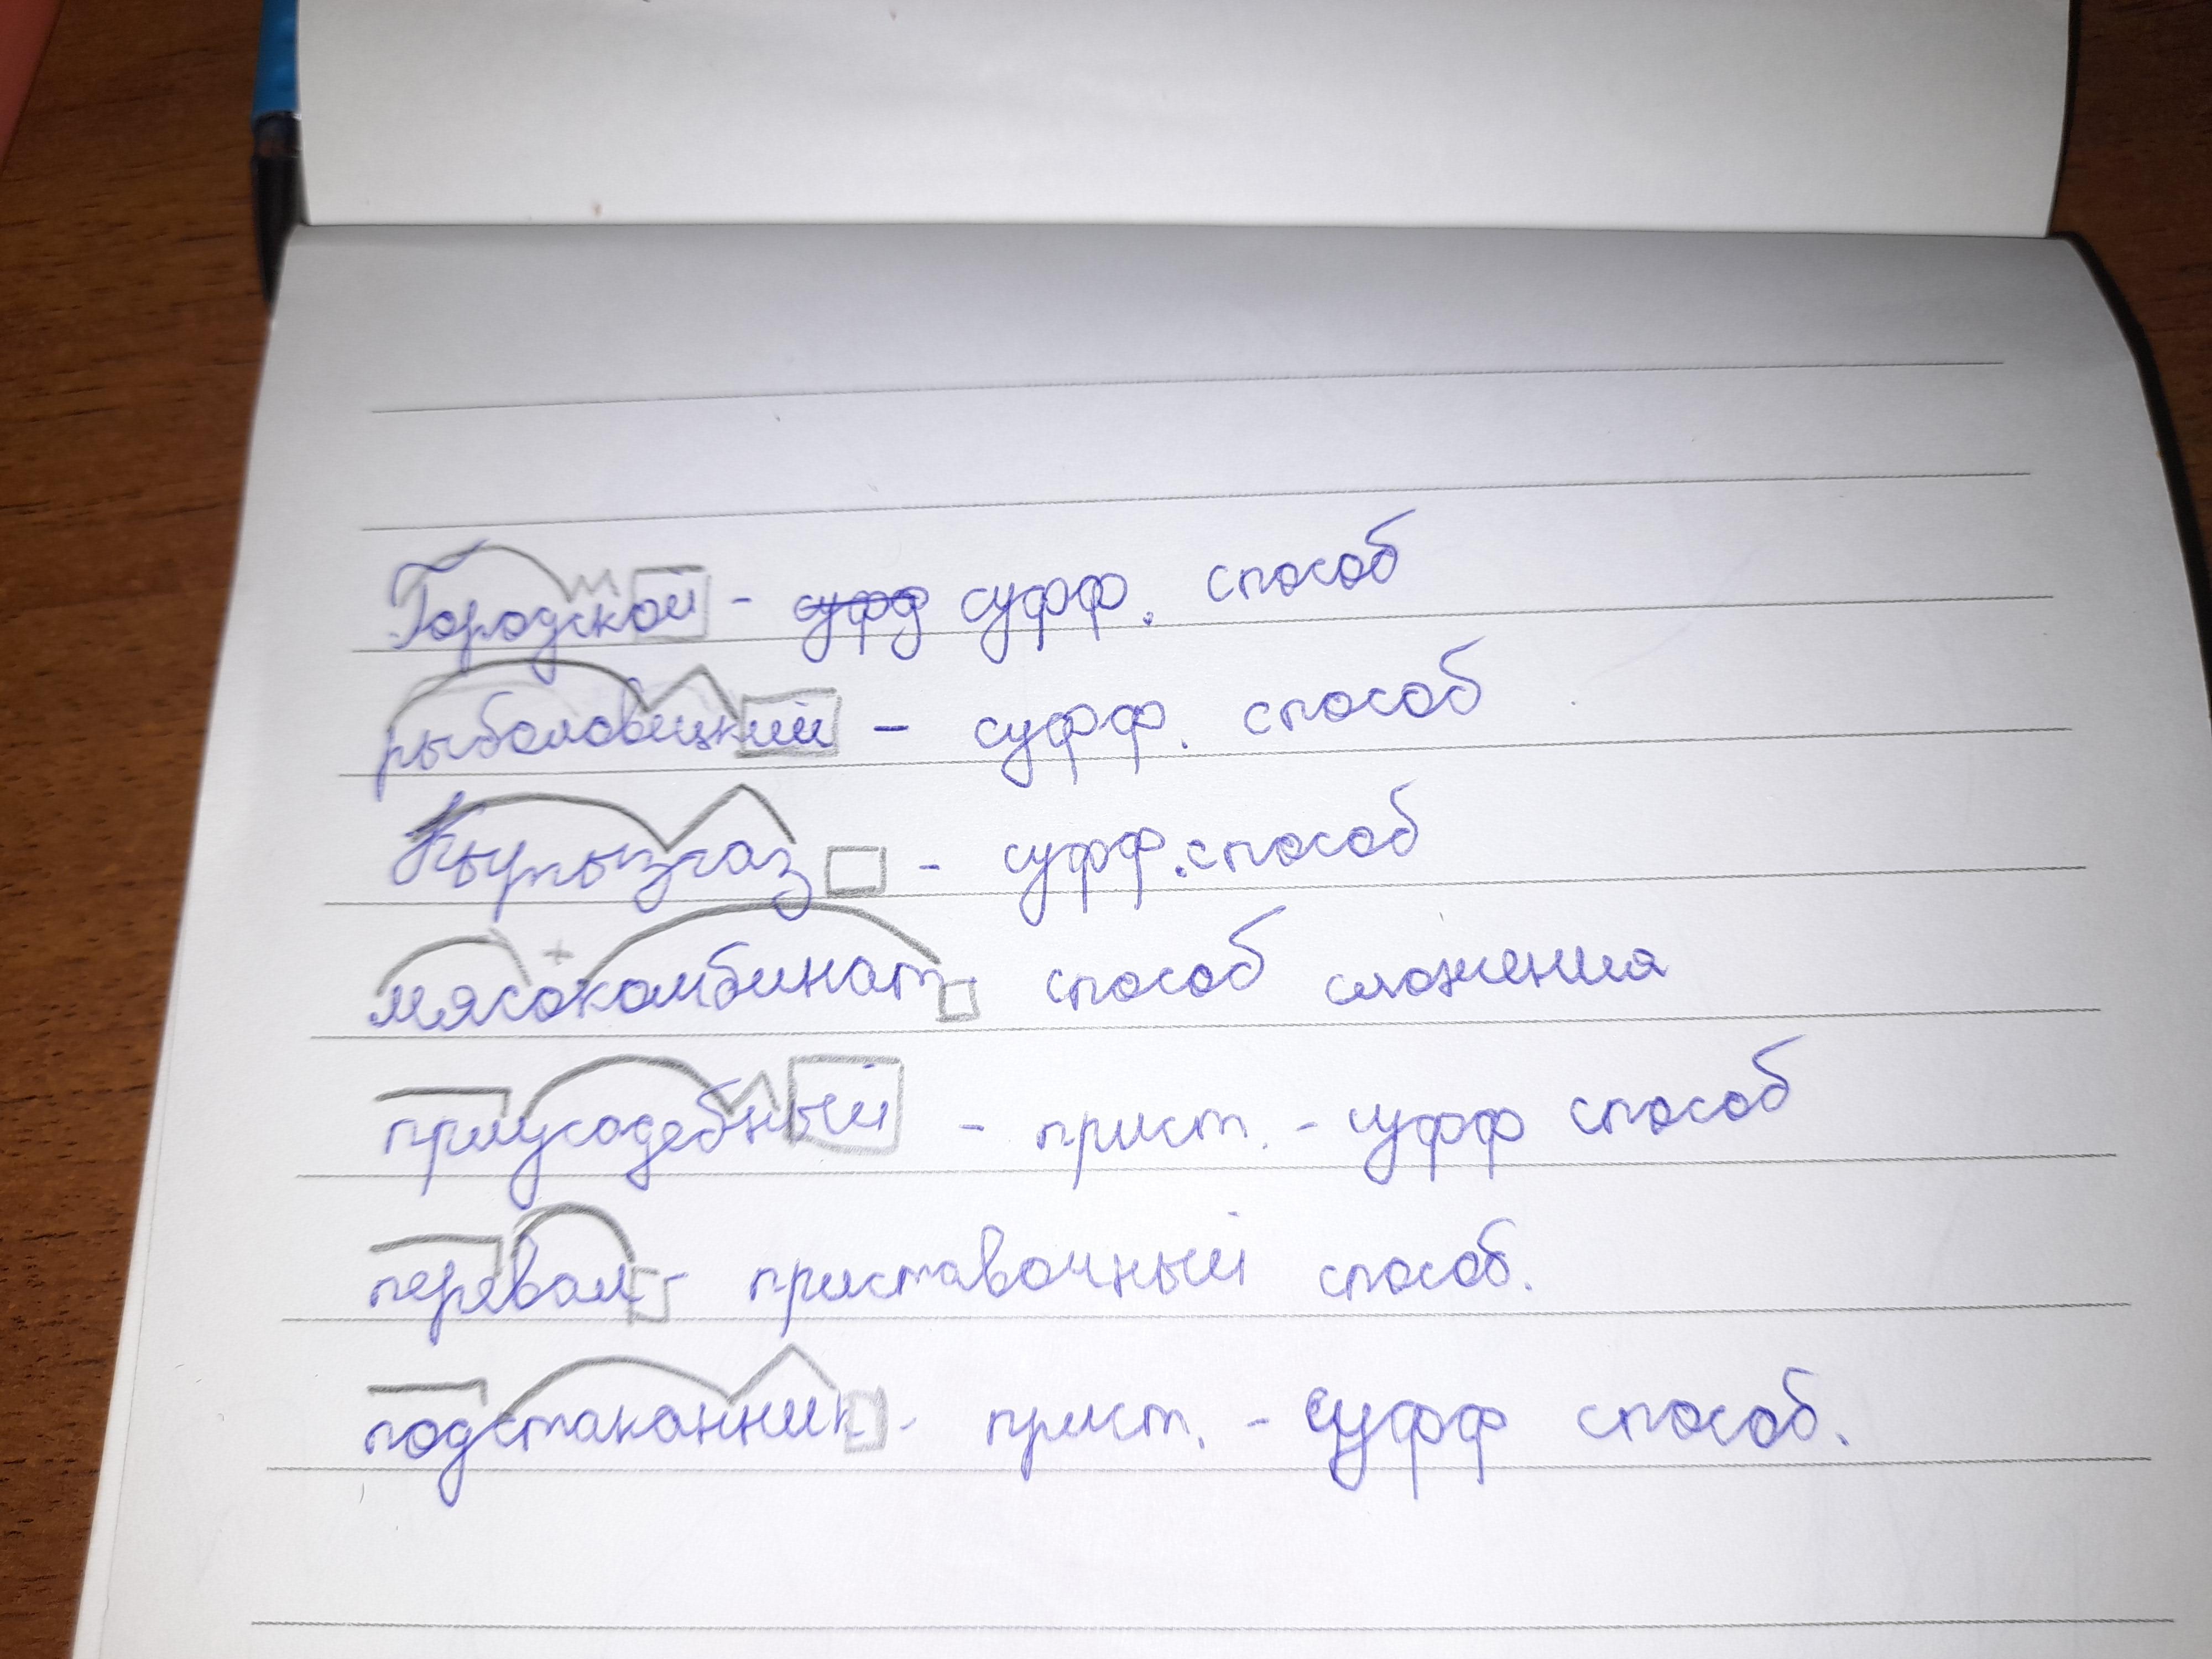 Городской - суфф суфф. способ
рыболовецкий - суфф. способ
Кыргызгаз - суфф. способ
мясокомбинат способ сложения
приусадебный - прист. - суфф способ
перевал - приставочный способ.
подстаканник - прист. - суфф способ.